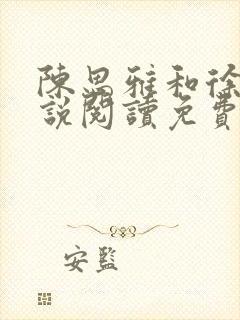 陳思雅和徐
說閱讀免費
安監